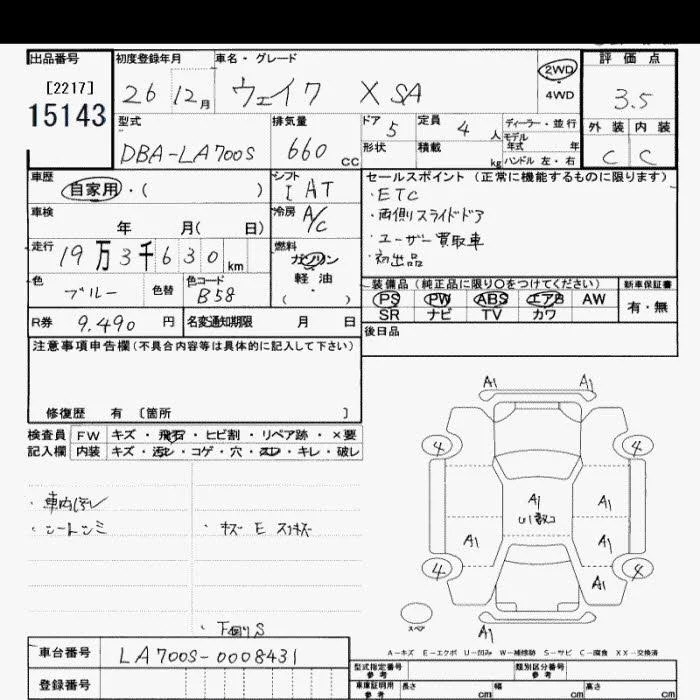 出品番号 初度登録年月 車名・グレード 2WD 4WD 評価点
[2217]
15143
26 12月 ウェイク X SA 3.5
型式 排気量 ドア 5 定員 4人 ディーラー・並行 外装 内装
モデル年式 年
DBA-LA700S 660cc 形状 積載 kg ハンドル 左・右 C C
車歴 シフト セールスポイント (正常に機能するものに限ります)
自家用・( ) I AT ・ETC
車検 冷房 A/C ・両側スライドドア
年 月( 日) ・ユーザー買取車
走行 19万3千630km 燃料 ガソリン ・初出品
軽油
( )
色 ブルー 色替 色コード B58 装備品(純正品に限り○をつけてください) 新車保証書
PS PW ABS エアB AW 有・無
SR ナビ TV カワ
R券 9.490円 名変通知期限 月 日 後日品
注意事項申告欄(不具合内容等は具体的に記入して下さい)
修復歴 有 [箇所 ]
検査員 FW キズ・飛石・ヒビ割・リペア跡・×要
記入欄 内装 キズ・汚レ・コゲ・穴・スレ・キレ・破レ
A1 A1
4 4
・車内汚レ A1 A1
・シートシミ ・キズ E スリキズ U1数コ
A1 A1
4 4
A1
スペア
・下廻りS A1
A-キズ E-エクボ U-凹み W-補修跡 S-サビ C-腐食 XX-交換済
車台番号 LA700S-0008431 型式指定番号 参考 類別区分番号 参考
登録番号 車庫証明用 参考 長さ cm 幅 cm 高さ cm